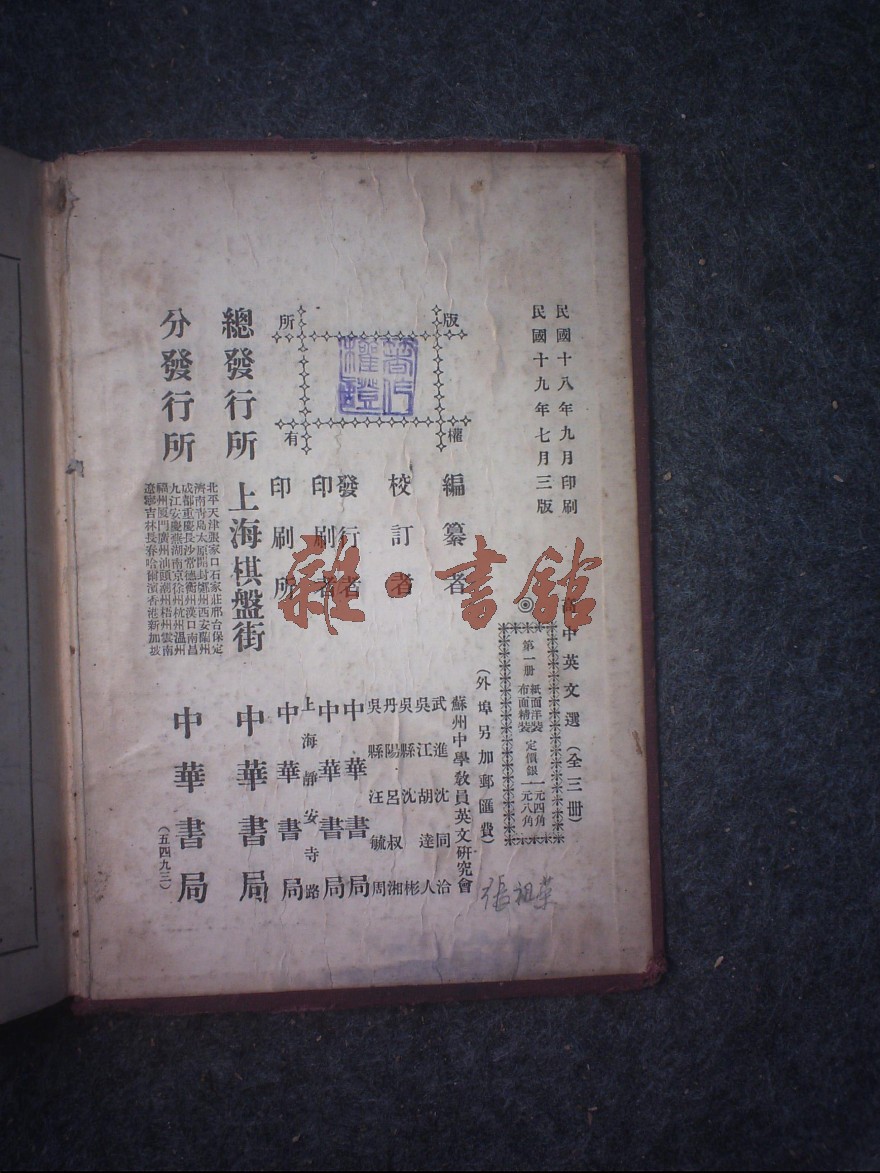 民國十八年九月印刷
民國十九年七月三版
高中英文選（全三冊）
第一册
紙面洋裝 定價銀 一元四角
布面精裝 定價銀 一元八角
（外埠另加郵匯費）
編纂者 蘇州中學教員英文研究會
校訂者
武進沈同洽
吳江胡達人
吳縣沈彬
丹陽呂叔湘
吳縣汪毓周
發行者 中華書局
印刷者 中華書局
印刷所 上海靜安寺路 中華書局
版權所有
著作權證
總發行所 上海棋盤街 中華書局
分發行所 中華書局
北平天津張家口石家莊邢台保定
濟南青島太原開封鄭州西安蘭州
成都重慶長沙常德衡州漢口南昌
九江安慶蕪湖南京徐州杭州溫州
福州廈門廣州汕頭潮州梧州雲南
遼寧吉林長春哈爾濱香港新加坡
（五四九三）
張祖葉
雜·書館